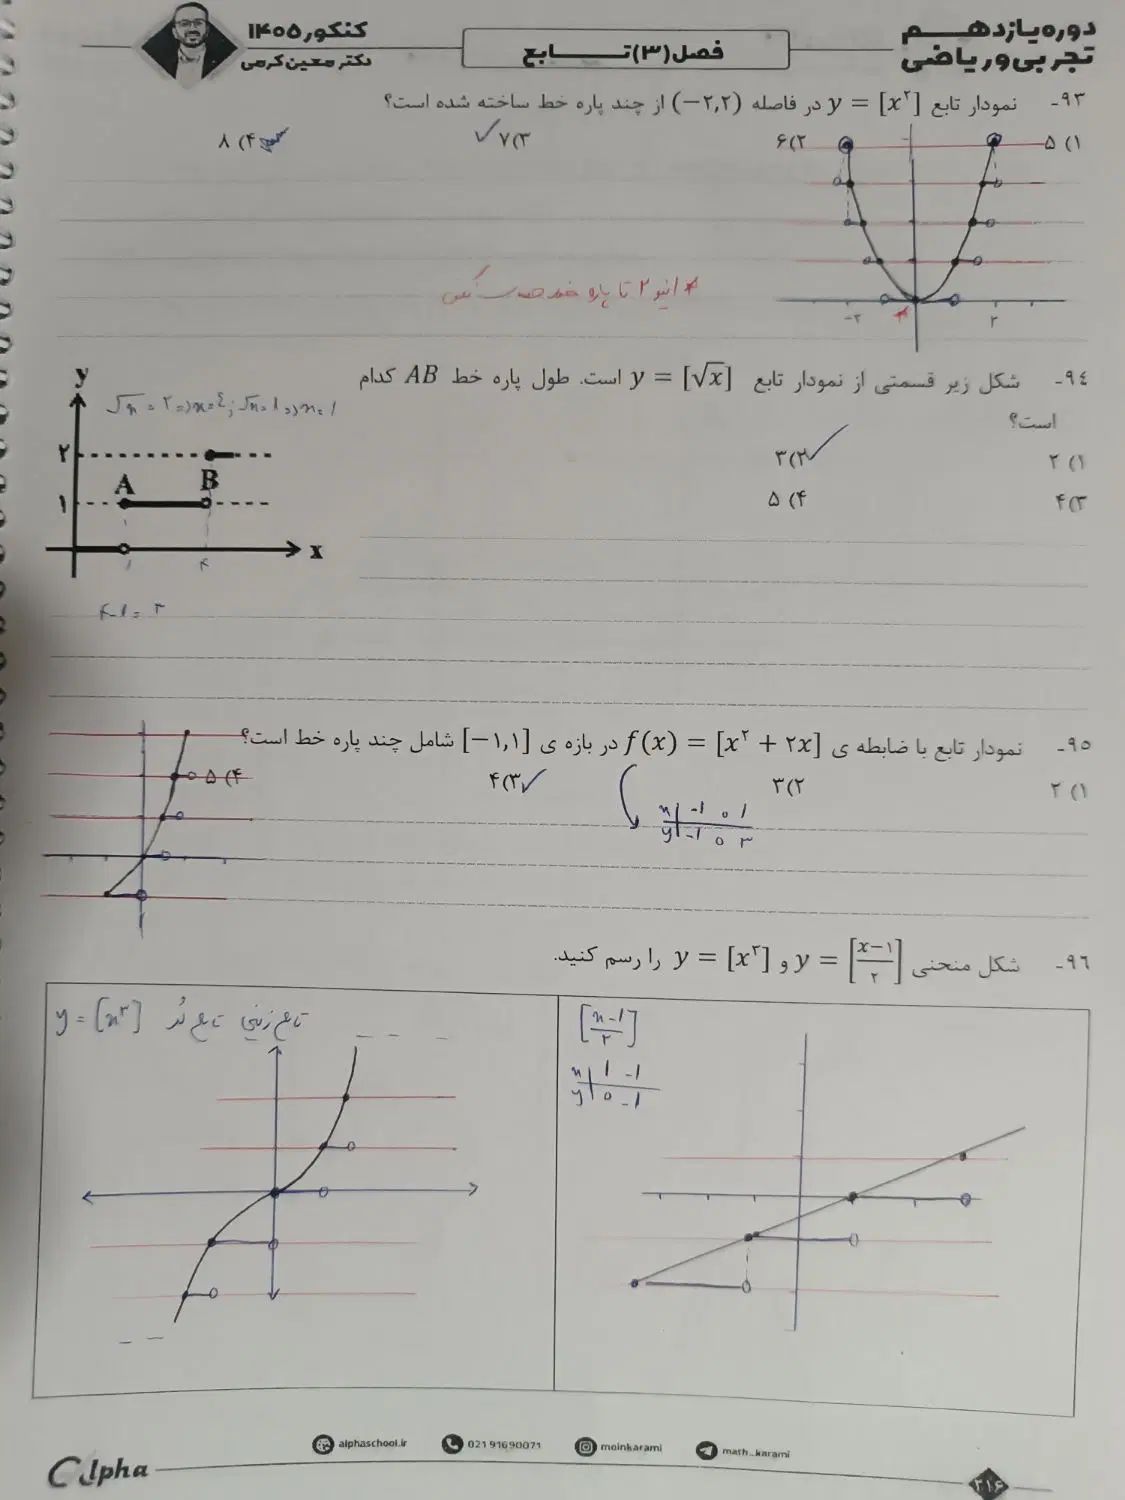 دوره یازدهم
تجربی و ریاضی
فصل (۳) تابع
کنکور ۱۴۰۵
دکتر معین کرمی
۹۳- نمودار تابع y = [x²] در فاصله (−۲,۲) از چند پاره خط ساخته شده است؟
۱) ۵ ۲) ۶ ۳) ۷ ۴) ۸
-۲ ۲
۹۴- شکل زیر قسمتی از نمودار تابع y = [√x] است. طول پاره خط AB کدام
است؟
۱) ۲ ۲) ۳
۳) ۴ ۴) ۵
y
√x = ۲ => x = ٤ ; √x = ۱ => x = ۱
۲
A B
۱
x
۱ ۴
۴-۱ = ۳
۹۵- نمودار تابع با ضابطه ی f(x) = [x² + ۲x] در بازه ی [−۱,۱] شامل چند پاره خط است؟
۱) ۲ ۲) ۳ ۳) ۴ ۴) ۵
x | -۱ ۰ ۱
y | -۱ ۰ ۳
۹۶- شکل منحنی y = [(x−۱)/۲] و y = [x³] را رسم کنید.
y = [x³] تابع زینی
[(x-۱)/۲]
x | ۱ -۱
y | ۰ -۱
alphaschool.ir 021 91690071 moinkarami math_karami
Alpha
۲۱۶